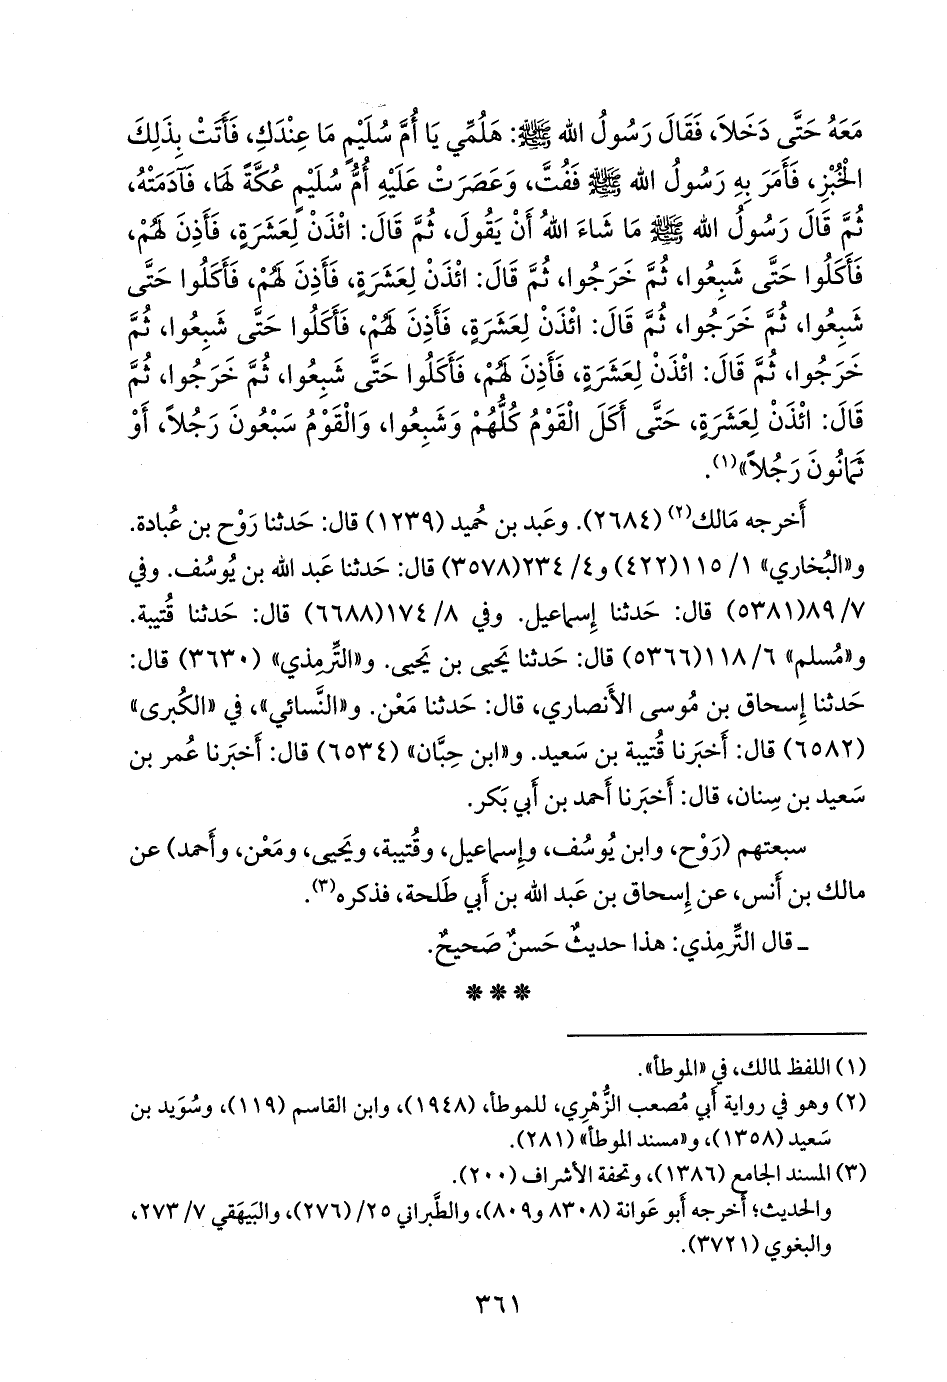 مَعَهُ حَتَّى دَخَلاَ، فَقَالَ رَسُولُ الله ﷺ: هَلُمِّي يَا أُمَّ سُلَيْمٍ مَا عِنْدَكِ، فَأَتَتْ بِذَلِكَ
الْخُبْزِ، فَأَمَرَ بِهِ رَسُولُ الله ﷺ فَفُتَّ، وَعَصَرَتْ عَلَيْهِ أُمُّ سُلَيْمٍ عُكَّةً لَهَا، فَآدَمَتْهُ،
ثُمَّ قَالَ رَسُولُ الله ﷺ مَا شَاءَ اللهُ أَنْ يَقُولَ، ثُمَّ قَالَ: ائْذَنْ لِعَشَرَةٍ، فَأَذِنَ لَهُمْ،
فَأَكَلُوا حَتَّى شَبِعُوا، ثُمَّ خَرَجُوا، ثُمَّ قَالَ: ائْذَنْ لِعَشَرَةٍ، فَأَذِنَ لَهُمْ، فَأَكَلُوا حَتَّى
شَبِعُوا، ثُمَّ خَرَجُوا، ثُمَّ قَالَ: ائْذَنْ لِعَشَرَةٍ، فَأَذِنَ لَهُمْ، فَأَكَلُوا حَتَّى شَبِعُوا، ثُمَّ
خَرَجُوا، ثُمَّ قَالَ: ائْذَنْ لِعَشَرَةٍ، فَأَذِنَ لَهُمْ، فَأَكَلُوا حَتَّى شَبِعُوا، ثُمَّ خَرَجُوا، ثُمَّ
قَالَ: ائْذَنْ لِعَشَرَةٍ، حَتَّى أَكَلَ الْقَوْمُ كُلُّهُمْ وَشَبِعُوا، وَالْقَوْمُ سَبْعُونَ رَجُلاً، أَوْ
ثَمَانُونَ رَجُلاً»(١).
أَخرجه مَالك(٢) (٢٦٨٤). وعَبد بن حُميد (١٢٣٩) قال: حَدثنا رَوْح بن عُبادة.
و«البُخاري» ١/ ١١٥(٤٢٢) و٤/ ٢٣٤(٣٥٧٨) قال: حَدثنا عَبد الله بن يُوسُف. وفي
٧/ ٨٩(٥٣٨١) قال: حَدثنا إِسماعيل. وفي ٨/ ١٧٤(٦٦٨٨) قال: حَدثنا قُتيبة.
و«مُسلم» ٦/ ١١٨(٥٣٦٦) قال: حَدثنا يَحيى بن يَحيى. و«التِّرمِذي» (٣٦٣٠) قال:
حَدثنا إِسحاق بن مُوسى الأَنصاري، قال: حَدثنا مَعْن. و«النَّسائي»، في «الكُبرى»
(٦٥٨٢) قال: أَخبَرنا قُتيبة بن سَعيد. و«ابن حِبَّان» (٦٥٣٤) قال: أَخبَرنا عُمر بن
سَعيد بن سِنان، قال: أَخبَرنا أَحمد بن أَبي بَكر.
سبعتهم (رَوْح، وابن يُوسُف، وإِسماعيل، وقُتيبة، ويَحيى، ومَعْن، وأَحمد) عن
مالك بن أَنس، عن إِسحاق بن عَبد الله بن أَبي طَلحة، فذكره(٣).
ـ قال التِّرمِذي: هذا حديثٌ حَسنٌ صَحيحٌ.
***
(١) اللفظ لمالك، في «الموطأ».
(٢) وهو في رواية أَبي مُصعب الزُّهْري، للموطأ، (١٩٤٨)، وابن القاسم (١١٩)، وسُوَيد بن
سَعيد (١٣٥٨)، و«مسند الموطأ» (٢٨١).
(٣) المسند الجامع (١٣٨٦)، وتحفة الأشراف (٢٠٠).
والحديث؛ أَخرجه أَبو عَوانة (٨٣٠٨ و٨٠٩)، والطَّبراني ٢٥/ (٢٧٦)، والبَيهَقي ٧/ ٢٧٣،
والبغوي (٣٧٢١).
٣٦١